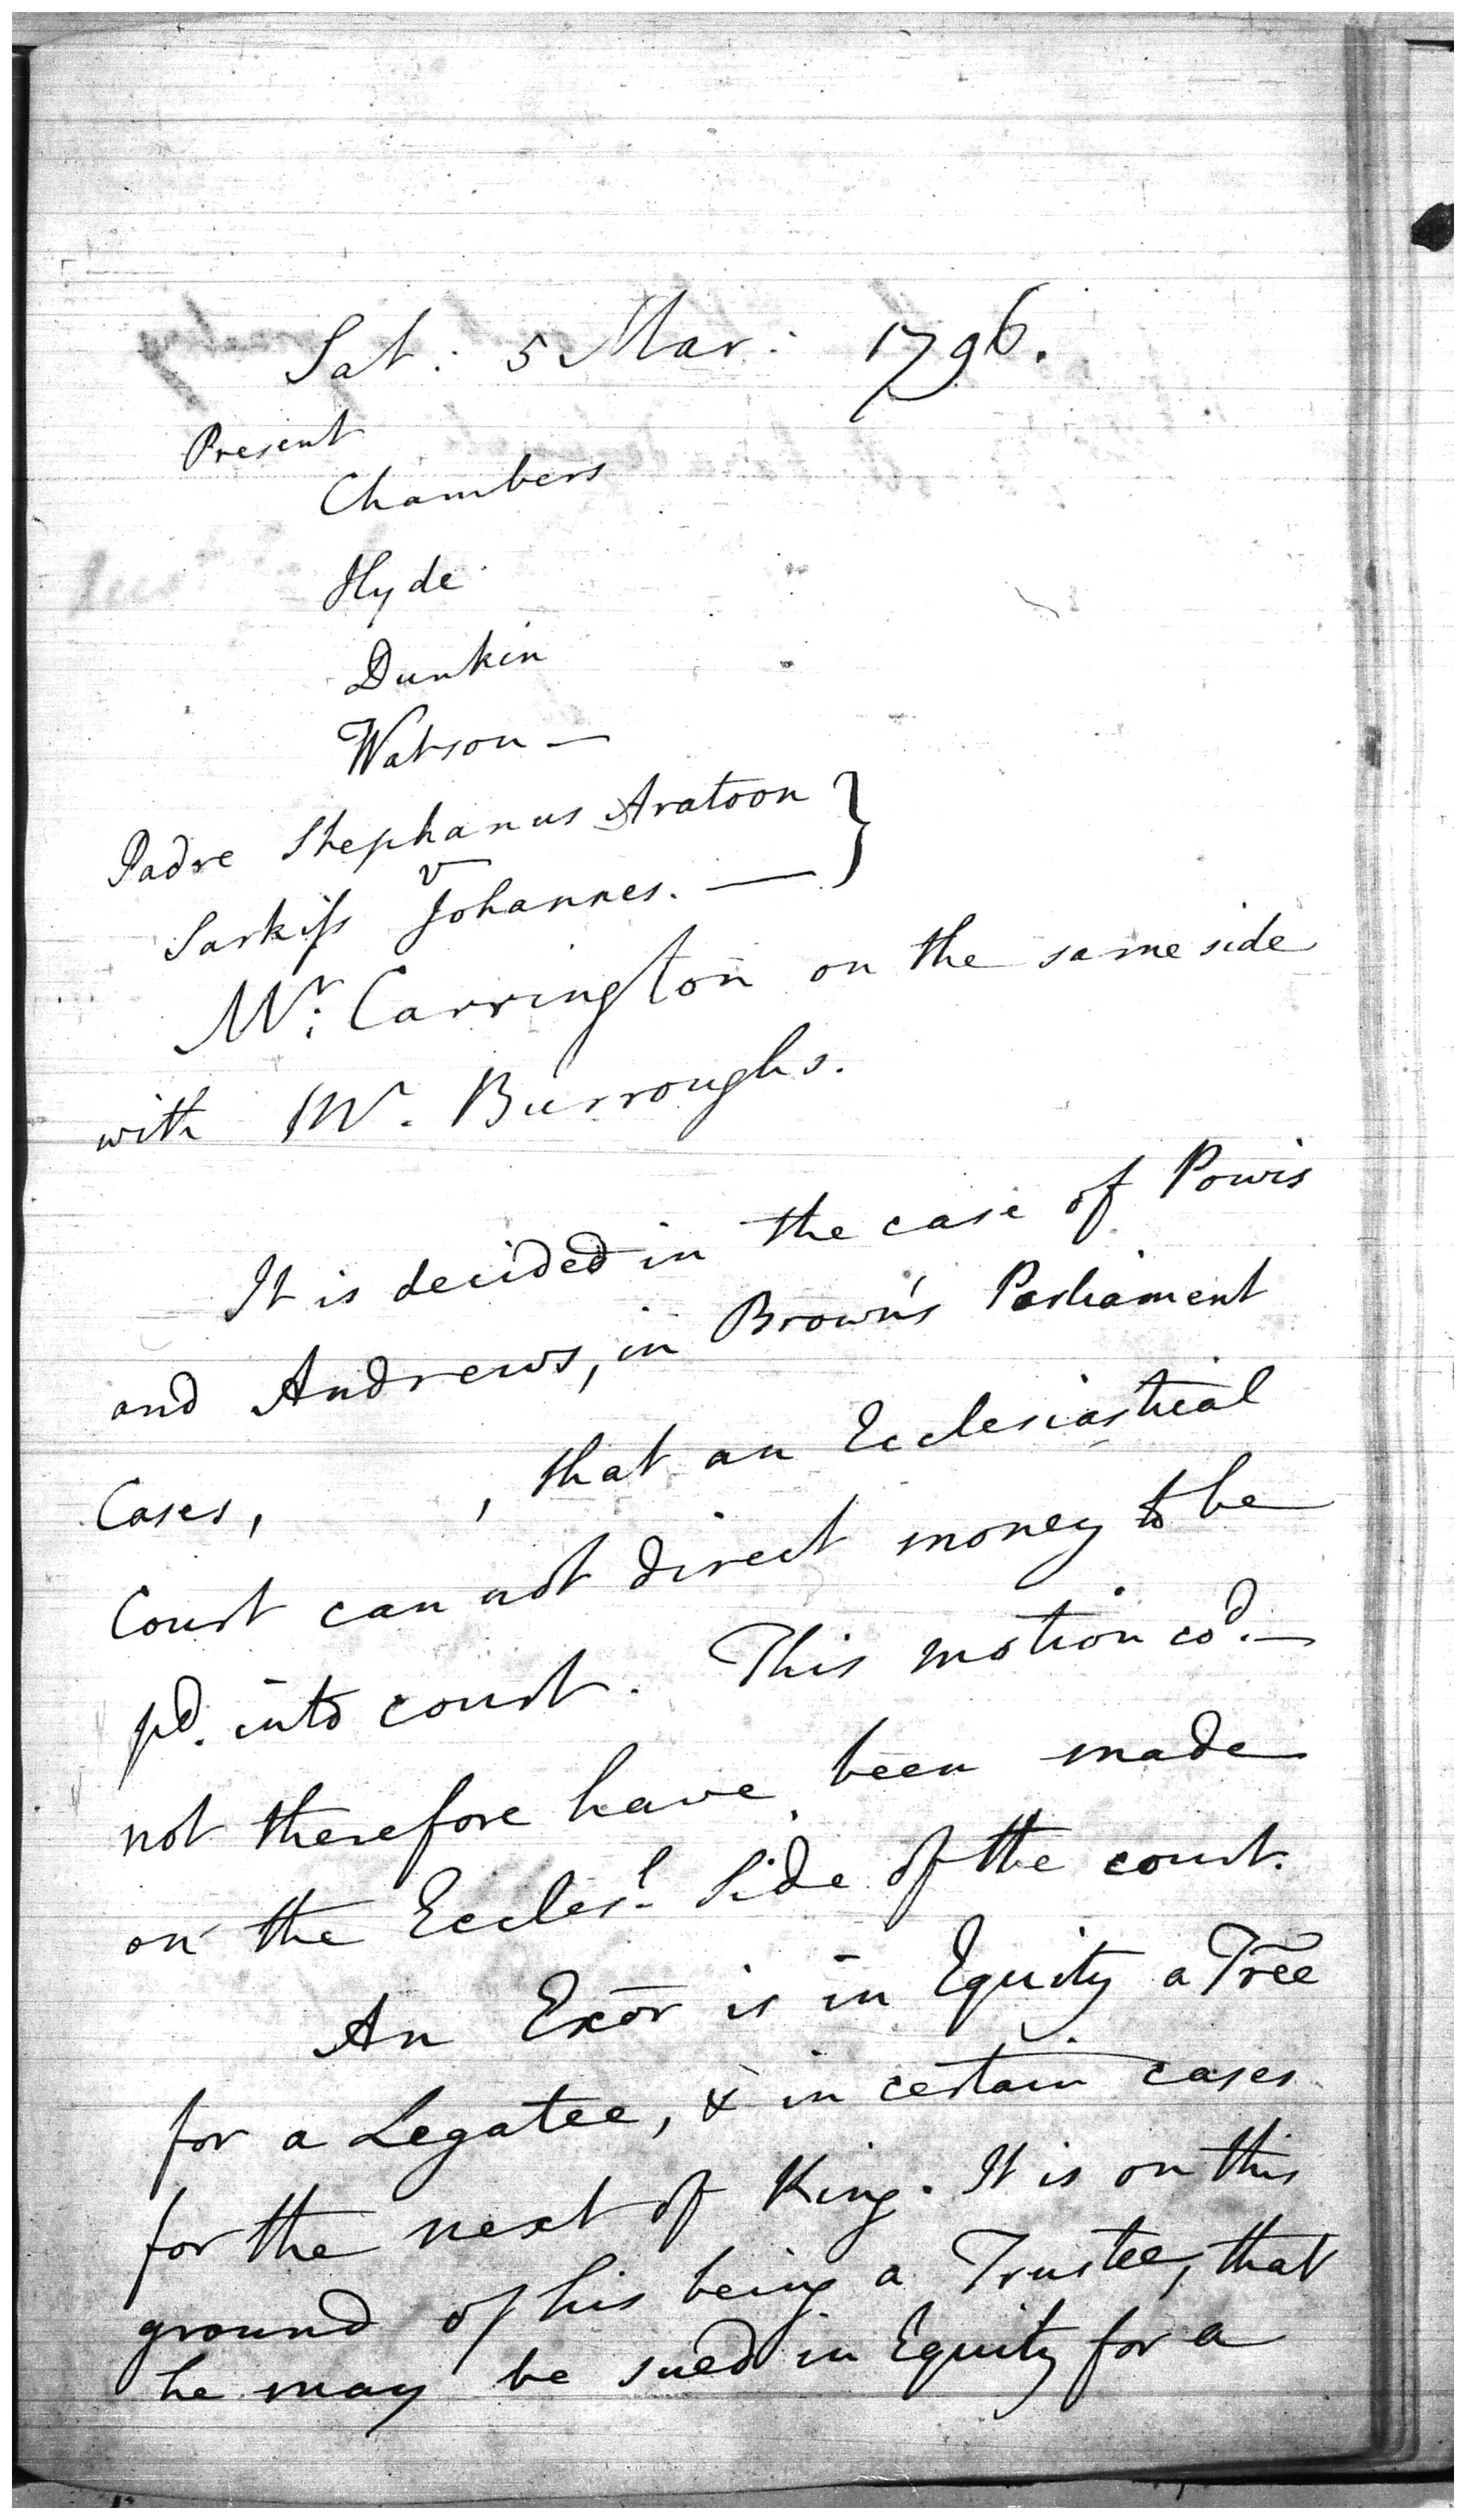 Sat: 5 Mar: 1796.
Present
Chambers
Hyde
Dunkin
Watson —
Padre Stephanus Aratoon }
v
Sarkiss Johannes. —
Mr. Carrington on the same side
with Mr. Burroughs.
It is decided in the case of Powis
and Andrews, in Brown's Parliament
Cases, , that an Ecclesiastical
Court can not direct money to be
pd. into court. This motion cod. —
not therefore have been made
on the Eccles.l Side of the court.
An Exōr is in Equity a Trēē
for a Legatee, & in certain cases
for the next of King. It is on this
ground of his being a Trustee, that
he may be sued in Equity for a